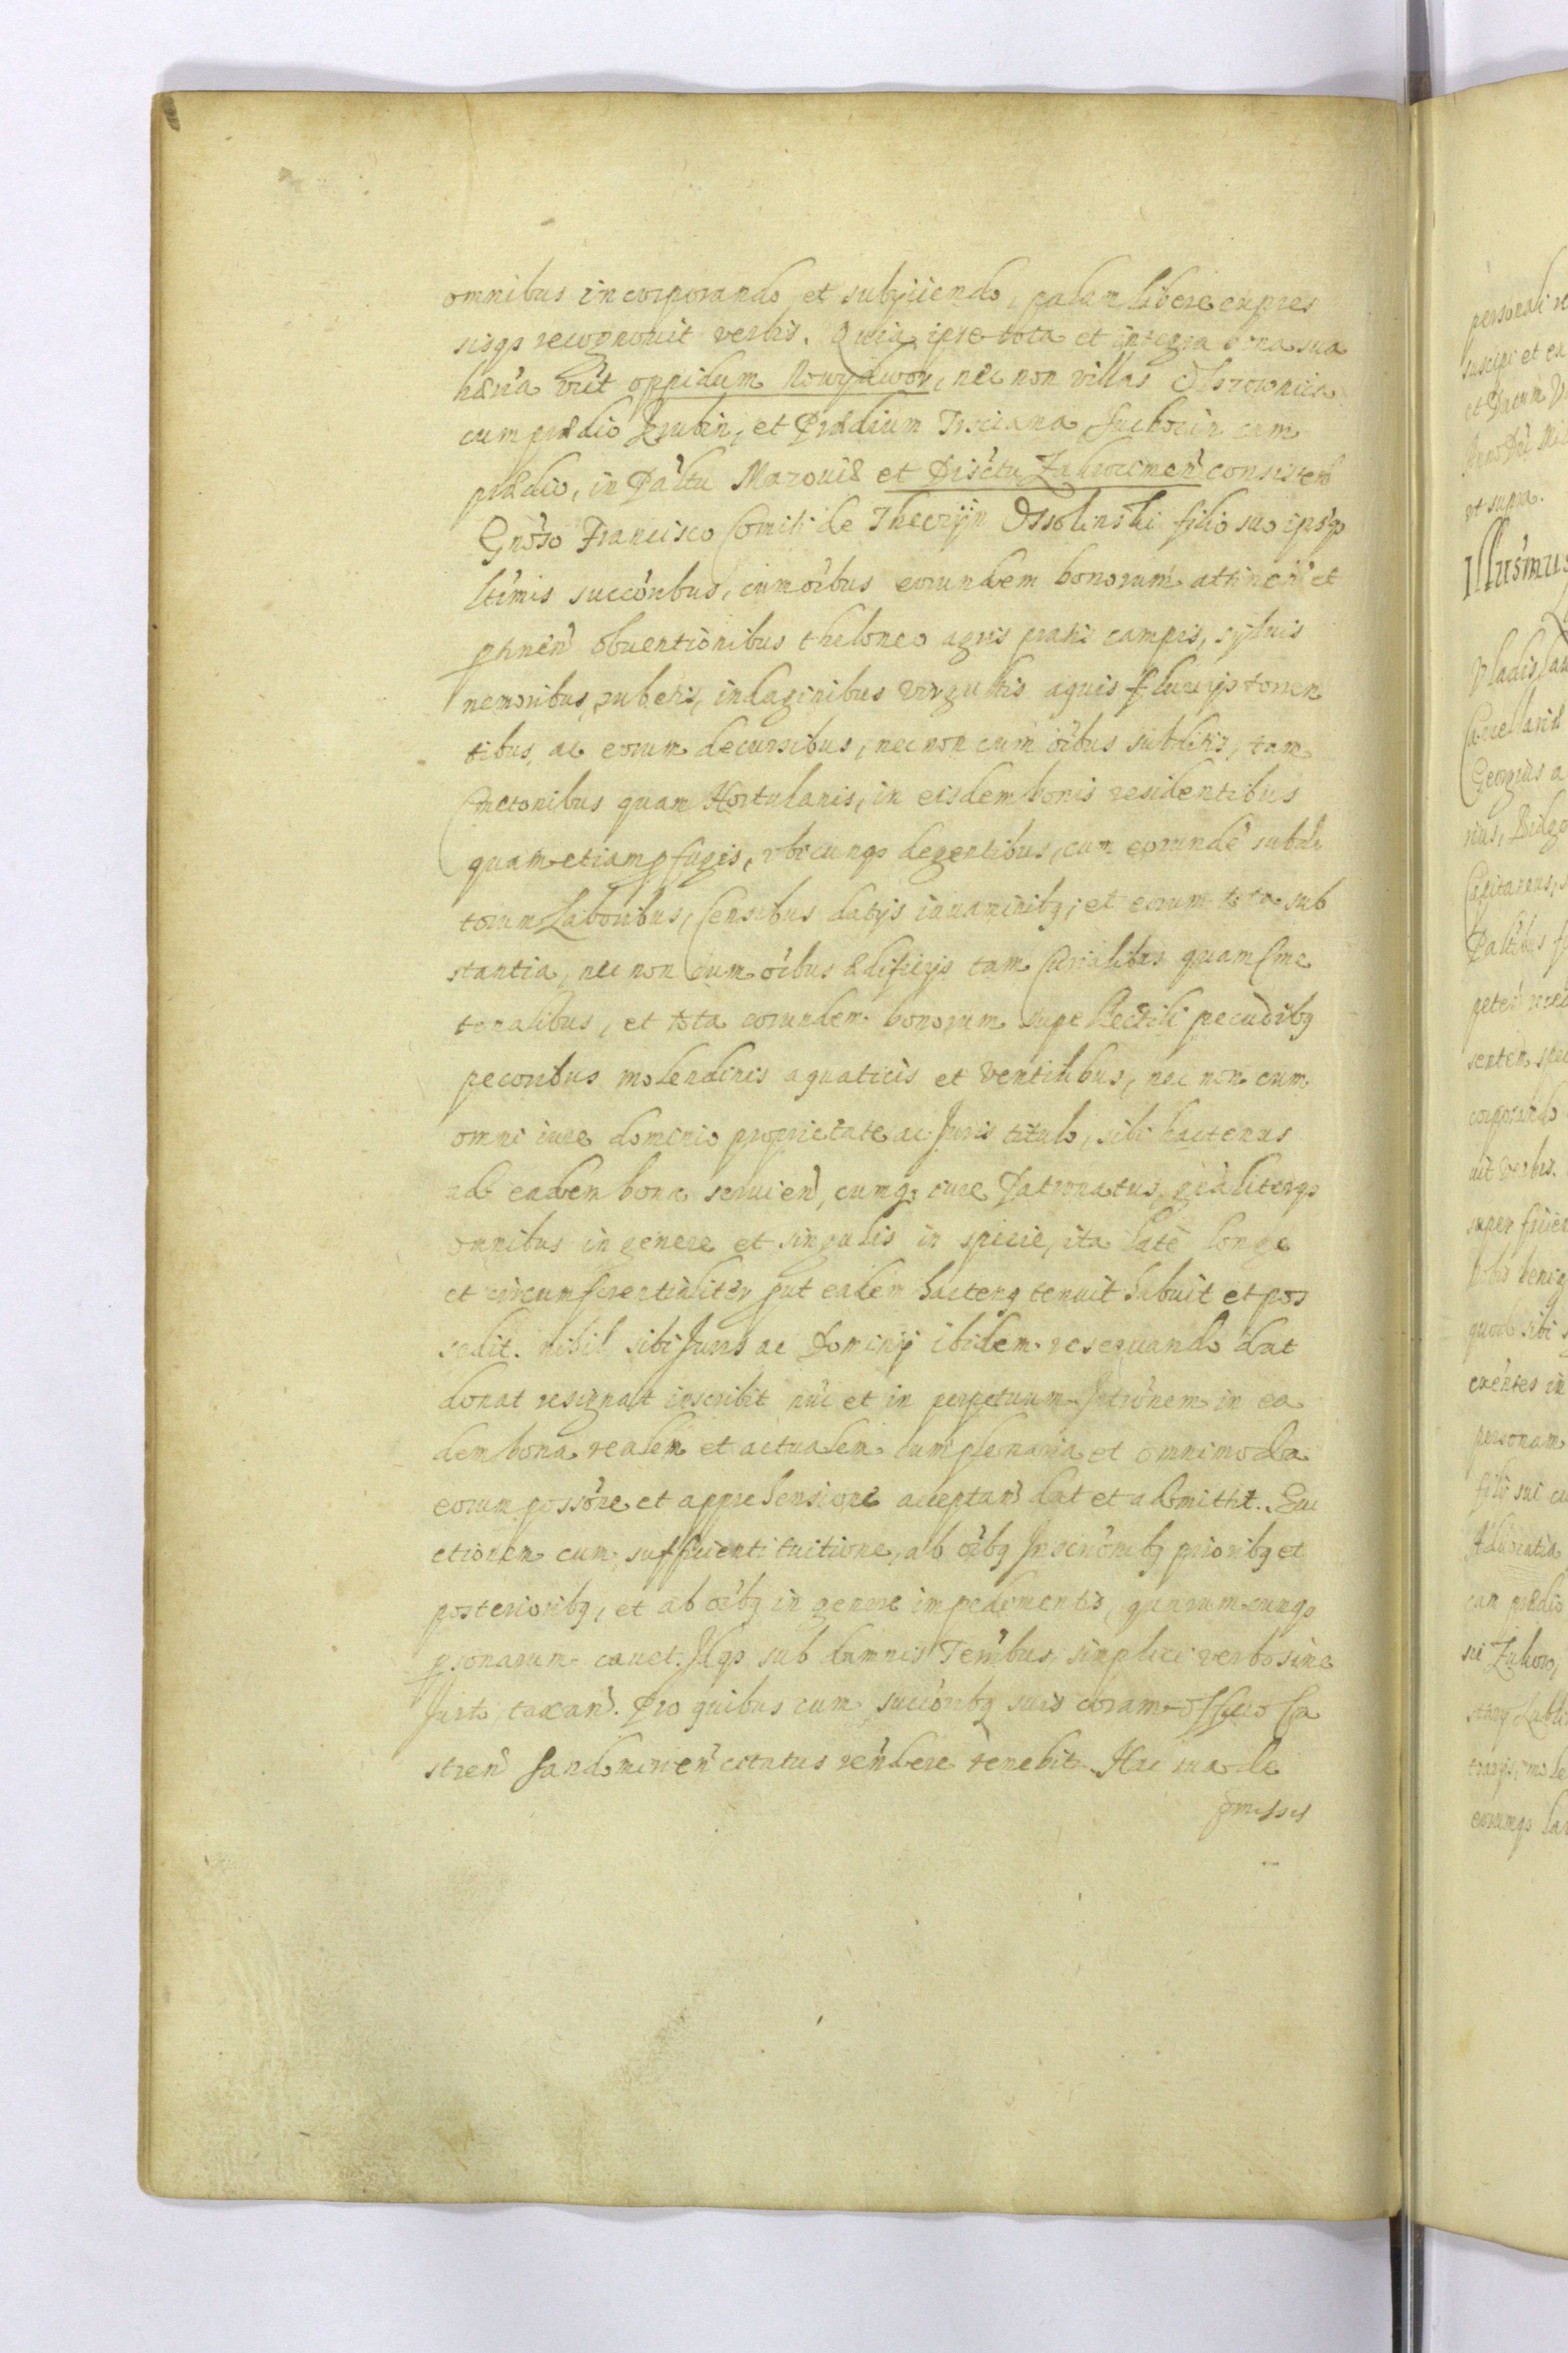 omnibus incorporando et subÿciendo, palam libere expres
sisqs recognovit verbis. Quia ipse tota et integra bona sua
hæria vt̃t oppidum Nowÿdwor, nec non villas Okrzownica
cum prædio et Prædium Trzciana Suchocin cum
prædio, in Pal̃tu Mazouiæ et Disc̃tu Zakrocimen̄ consisten̄
Gñoso Francisco Comiti de Thecziyn Ossolinski filio suo ipsẽqs
ltĩmis succõribus, cum oĩbus eorundem bonorum attinen̄ et
ptinen̄ obuentionibus theloneo agris pratis campis, syluis
nemoribus, rubetis, indaginibus virgultis aquis fluuÿs torren
tibus, ac eorum decursibus, nec non cum oĩbus subditis, tam
Cmetonibus quam Hortulanis, in eisdem bonis residentibus
quam etiam pfugis, vbicunqs degentibus, cum eorundẽ subdi
torum Laboribus, Censibus datÿs iuuaminibq; et eorum tota sub
stantia, nec non cum oĩbus ædificÿs tam Curialibus quam Cme
tonalibus, et tota eorundem bonorum supellectili pecudibq
pecoribus molendinis aquaticis et ventilibus, nec non cum
omni iure dominio proprietate ac Juris titulo, sibi hactenus
ad eadem bona seruien̄, cumq; iure Patronatus, gñaliterqs
omnibus in genere et singulis in specie, ita late longe
et circumferentialiter put eadem hactenq tenuit habuit et pos
sedit. nihil sibi Juris ac Dominÿ ibidem reseruando dat
donat resignat inscribit nũc et in perpetuum Intrõnem in ea
dem bona realem et actualem cum plenaria et omnimoda
eorum possõne et apprehensione acceptan̄ dat et admittit. Eui
ctionem cum sufficienti tuitione, ab oĩbq Inscrõnibq prioribq et
posterioribq, et ab oĩbq in genere impedimentis, quarumcunqs
psonarum cauet. Idqs sub damnis Terr̃ibus simplici verbo sine
Jurto taxan̄. Pro quibus cum succõribq suis coram officio Ca
stren̄ Sandomirien̄ citatus rẽndere tenebit. Hac sua de
pmissis